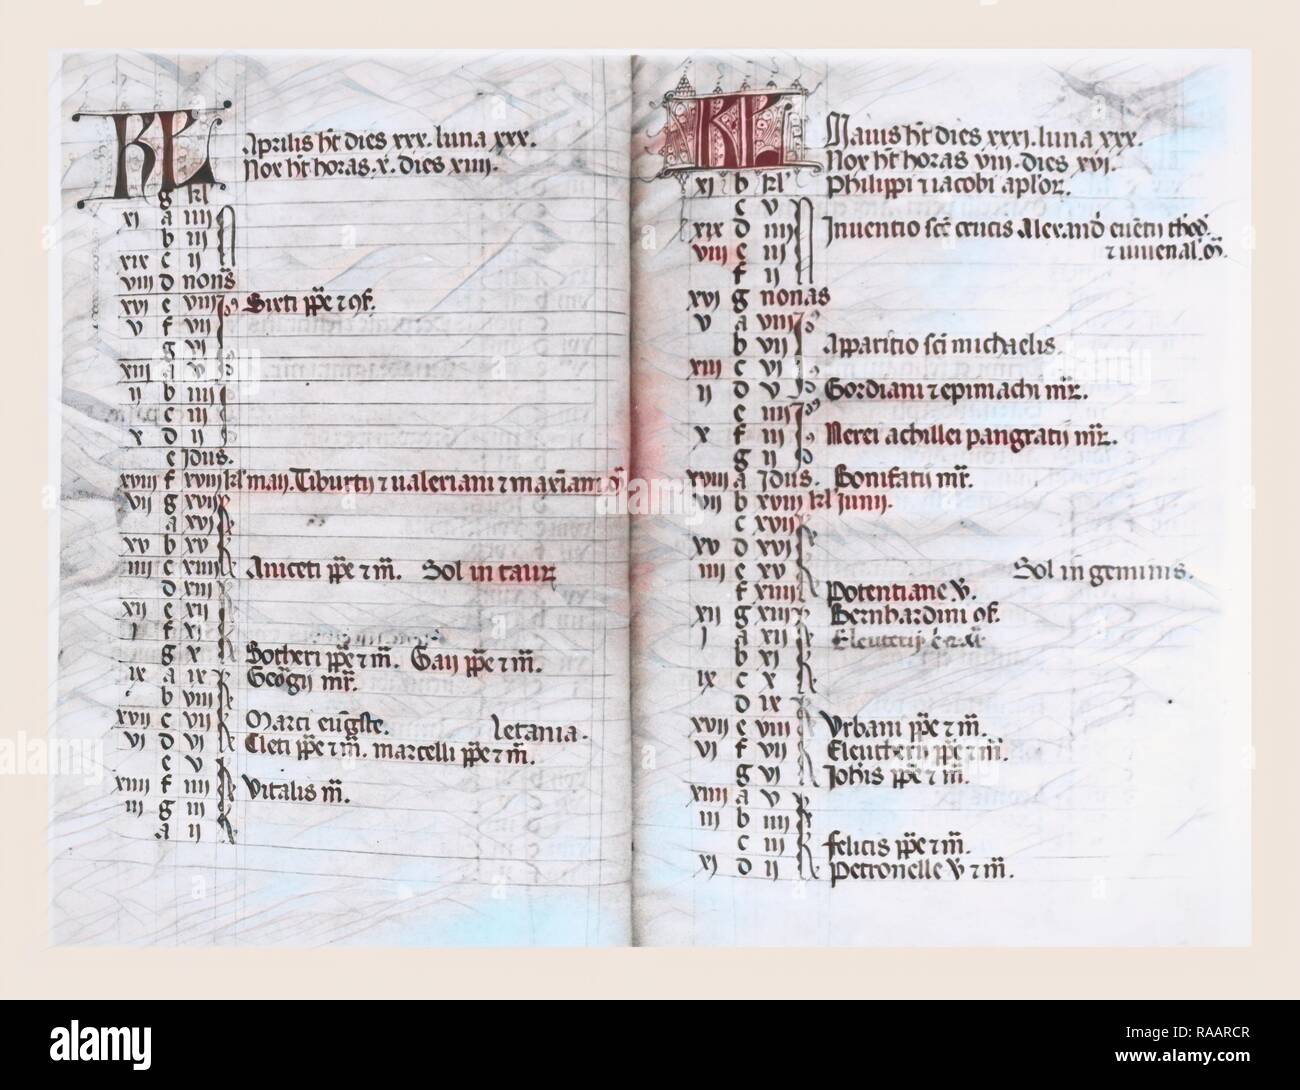 KL Aprilis ht dies xxx. luna xxx.
Nox ht horas. x. dies xiiii.
g kl
xi a iiii
b iii
xix c ii
viii d nons
xvi e viii Sixti ppe et cf.
v f vii
g vi
xiii a v
ii b iiii
c iii
x d ii
e Idus.
xviii f xviii kl' maii. Tiburtii et valeriani et maximi m
vii g xvii
a xvi
xv b xv
iiii c xiiii Aniceti ppe et m. Sol in taur
d xiii
xii e xii
i f xi
g x Sotheri ppe et m. Gaii ppe et m.
ix a ix Georgii mr.
b viii
xvii c vii Marci eungste. Letania.
vi d vi Cleti ppe et m. marcelli ppe et m.
e v
xiiii f iiii Vitalis m.
iii g iii
a ii
KL Maius ht dies xxxi. luna xxx.
Nox ht horas viii. dies xvi.
xi b kl' Philippi et iacobi aplor.
c v
xix d iiii Inuentio sce crucis Alexandri euentii theod.
viii e iii et iuuenal'. m.
f ii
xvi g nonas
v a viii
b vii Apparitio sci michaelis.
xiii c vi
ii d v Gordiani et epimachi mr.
e iiii
x f iii Nerei achillei pangratii mr.
g ii
xviii a Idus. Bonifatii mr.
vii b xviii kl' Iunii.
c xvii
xv d xvi
iiii e xv Sol in geminis.
f xiiii Potentiane v.
xii g xiii Bernhardini cf.
i a xii
b xi
ix c x
d ix
xvii e viii Vrbani ppe et m.
vi f vii Eleutherii ppe et m.
g vi Johis ppe et m.
xiiii a v
iii b iiii
c iii felicis ppe et m.
xi d ii Petronelle v et m.
alamy
Image ID: RAARCR
www.alamy.com